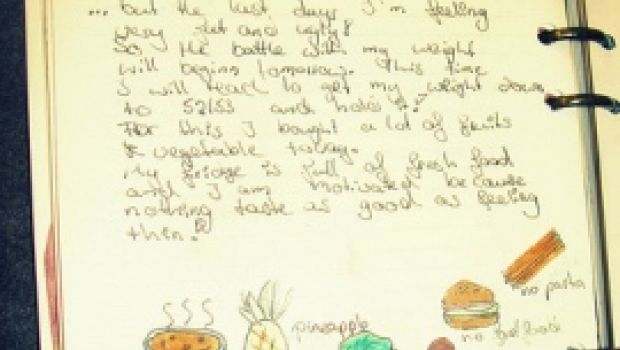 ... but the last days I'm feeling
very fat and ugly!
So the battle with my weight
will begin tomorrow. This time
I will react to get my weight down
to 52/53 and hold it!
For this I bought a lot of fruits
& vegetable today.
My fridge is full of fresh food
and I am motivated because
nothing taste as good as feeling
thin!
no pasta
pineapple
no fast food